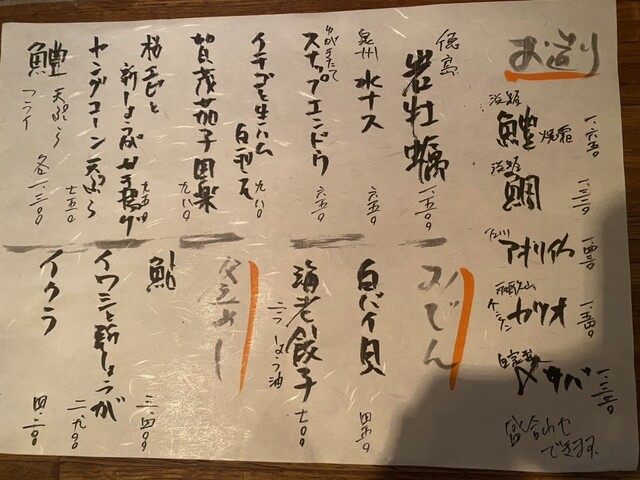 お造り
淡路 鱧 焼霜 一.六五〇
淡路 鯛 一.三二〇
石川 アオリイカ 一.四三〇
和歌山 ケンケンカツオ 一.五四〇
自家製 〆サバ 一.三二〇
盛合せも
できます。
徳島 岩牡蠣 一.一五〇
泉州 水ナス 六五〇
ゆがきたて スナップエンドウ 六五〇
イチゴと生ハム 白和え 九八〇
賀茂茄子田楽 九八〇
桜エビと
新しょうが
ヤングコーン天ぷら 七五〇
鱧 天ぷら
フライ 各一.三〇〇
おでん
白バイ貝 四五〇
海老餃子
ニラしょうゆ 七〇〇
釜めし
鮎 三.四〇〇
イワシと新しょうが 二.九〇〇
イクラ 四.二〇〇